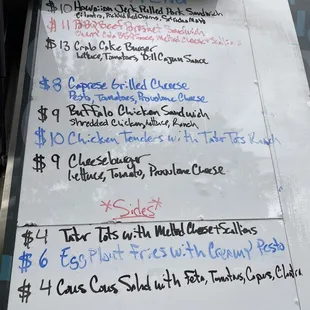 $10 Hawaiian Jerk Pulled Pork Sandwich
Cilantro, Pickled Red Onions,
$11 BBQ Beef Brisket Sandwich
Melted Cheese + Scallions
$13 Crab Cake Burger
Lettuce, Tomatoes, Dill Cajun Sauce
$8 Caprese Grilled Cheese
Pesto, Tomatoes, Provolone Cheese
$9 Buffalo Chicken Sandwich
Shredded Chicken, Lettuce, Ranch
$10 Chicken Tenders with Tater Tots Ranch
$9 Cheeseburger
Lettuce, Tomato, Provolone Cheese
*Sides*
$4 Tater Tots with Melted Cheese + Scallions
$6 Egg Plant Fries with Creamy Pesto
$4 Cous Cous Salad with Feta, Tomatoes, Capers,